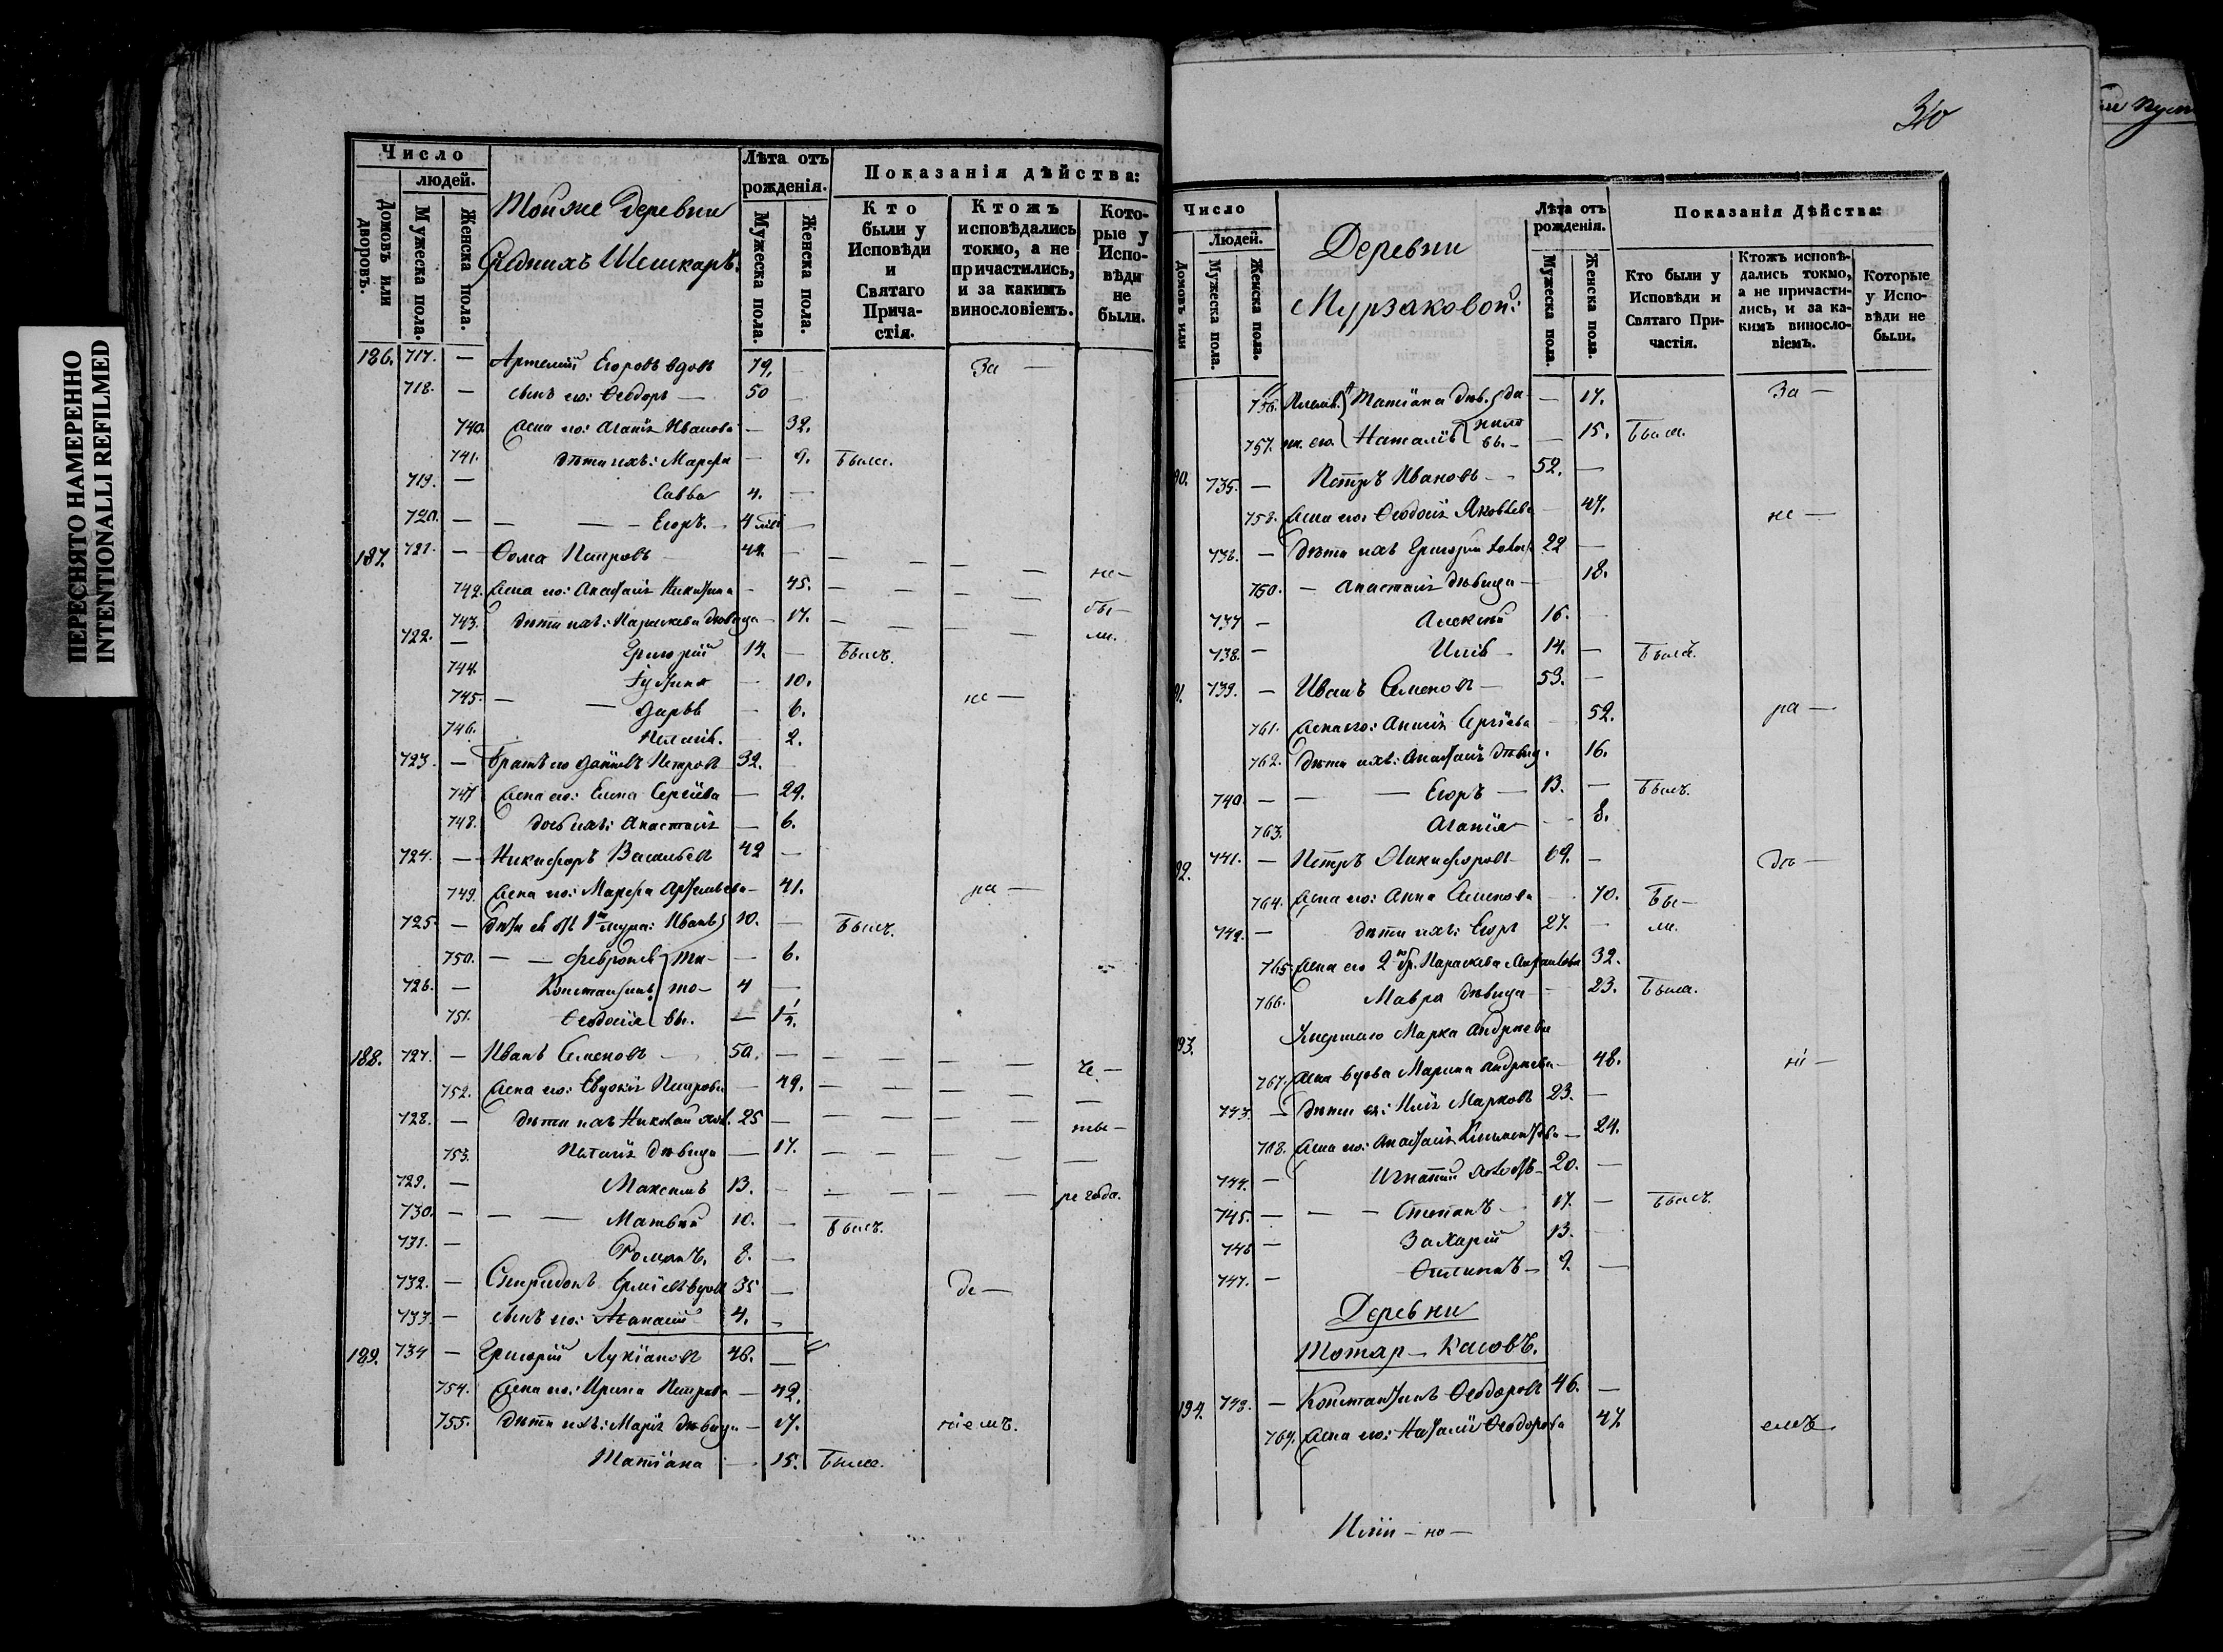 ПЕРЕСНЯТО НАМЕРЕННО
INTENTIONALLI REFILMED
Число
людей.
Домовъ или дворовъ.
Мужеска пола.
Женска пола.
Тойже деревни
Среднихъ Шешкаръ.
Лѣта отъ рожденія.
Мужеска пола.
Женска пола.
Показанія дѣйства:
Кто были у Исповѣди и Святаго Прича-стія.
Ктожъ исповѣдались токмо, а не причастились, и за какимъ винословіемъ.
Кото-рые у Испо-вѣди не были.
186. 717. — Артемій Егоровъ вдовъ 79. — За —
718. — сынъ его: Ѳеодоръ — 50
740. Жена его: Агапія Иванова — 32.
741. дѣти ихъ: Марѳа — 9. Была.
719. — Савва 4. —
720. — — — Егоръ. 4 —
187. 721. — Ѳома Петровъ 42. — — — — —
742. Жена его: Анастасія Никитина — 45. — — — — не —
743. дѣти ихъ: Параскева дѣвица — 17. — — — — бы —
722. — Григорій 14. — Былъ. ли.
744. Іустина — 10.
745. — — Дарья — 6. не —
746. Пелагія. — 2.
723. — Братъ его Даніилъ Петровъ 32. —
747. Жена его: Елена Сергіева — 29.
748. дочь ихъ: Анастасія — 6.
724. — Никифоръ Васильевъ 42 —
749. Жена его: Марѳа Артемьева — 41. ра —
725. — Иванъ 10. — Былъ.
750. — — Февронія — 6.
726. — Константинъ 4 —
751. Ѳеодосія — 1½.
188. 727. — Иванъ Семеновъ 50. — — — — —
752. Жена его: Евдокія Петрова — 49. — — — — че —
728. — дѣти ихъ Николай хол. 25 — — — — —
753. Наталія дѣвица — 17. — — — — ты —
729. — Максимъ 13. — — — — — ре года.
730. — — — Матвѣй 10. — Былъ.
731. — Романъ. 8. —
732. — Спиридонъ вдовъ 35 — де —
733. — сынъ его: Аѳанасій 4. —
189. 734 — Григорій Лукіановъ 46. —
754. Жена его: Ирина Петрова — 42.
755. дѣти ихъ: Марія дѣвица — 17. ніемъ.
Татіана — 15. Была.
30
Число
Людей.
Домовъ или
Мужеска пола.
Женска пола.
Деревни
Мурзаковой:
Лѣта отъ рожденія.
Мужеска пола.
Женска пола.
Показанія Дѣйства:
Кто были у Исповѣди и Святаго При-частія.
Ктожъ исповѣ-дались токмо, а не причасти-лись, и за ка-кимъ виносло-віемъ.
Которые у Испо-вѣди не были.
756. Татіана дѣв. — 17. За —
757. Наталія — 15. Была.
90. 735. — Петръ Ивановъ — 52. —
758. Жена его: Ѳеодосія Яковлева 47. не —
736. — дѣти ихъ Григорій 22 —
760. — Анастасія дѣвица — 18.
737 — Алексѣй 16. —
738. — Илія — 14. — Былъ.
91. 739. — Иванъ Семеновъ — 53. —
761. Жена его: Анисія Сергіева 52. ра —
762. дѣти ихъ: Анастасія дѣвиц. 16.
740. — — — Егоръ — 13. — Былъ.
763. Агапія — 8.
92. 741. — Петръ Никифоровъ 69. — дѣ —
764. Жена его: Анна Семенова — 70. Бы —
742. — дѣти ихъ: Егоръ 27. — ли.
765. Жена его 2 бр. Параскева 32.
766. Мавра дѣвица — 23. Была.
93. Умершаго Марка Андреева
767. Жена вдова Марина Андреева — 48. ні —
743. — дѣти ея: Илія Марковъ 23. —
768. Жена его: Анастасія — 24.
744. — Игнатій 20. —
745. — — — Степанъ — 17. — Былъ.
746 — Захарій 13. —
747. — 9. —
Деревни
Тотар — Касовъ.
194. 748. — Константинъ Ѳеодоровъ 46. —
769. Жена его: Наталія Ѳеодорова 47 емъ